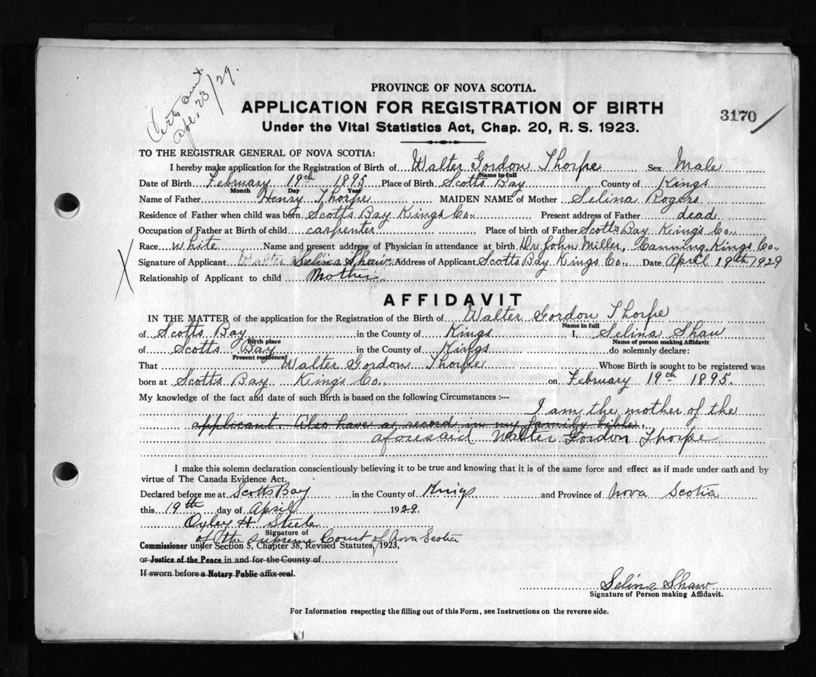 Cert sent
Apr. 23/29.
PROVINCE OF NOVA SCOTIA.
APPLICATION FOR REGISTRATION OF BIRTH
3170
Under the Vital Statistics Act, Chap. 20, R. S. 1923.
TO THE REGISTRAR GENERAL OF NOVA SCOTIA:
I hereby make application for the Registration of Birth of Walter Gordon Thorpe Sex Male
Name in full
Date of Birth February 19th 1895 Place of Birth Scotts Bay County of Kings
Month Day Year
Name of Father Henry Thorpe MAIDEN NAME of Mother Selina Rogers
Residence of Father when child was born Scotts Bay Kings Co. Present address of Father dead
Occupation of Father at Birth of child carpenter Place of birth of Father Scotts Bay Kings Co.
Race White Name and present address of Physician in attendance at birth Dr John Miller, Canning, Kings Co.
X Signature of Applicant Walter Selina Shaw Address of Applicant Scotts Bay Kings Co. Date April 19th 1929
Relationship of Applicant to child Mother
AFFIDAVIT
IN THE MATTER of the application for the Registration of the Birth of Walter Gordon Thorpe
Name in full
of Scotts Bay in the County of Kings I, Selina Shaw
Birth place Name of person making Affidavit
of Scotts Bay in the County of Kings do solemnly declare:
Present residence
That Walter Gordon Thorpe Whose Birth is sought to be registered was
born at Scotts Bay Kings Co. on February 19th 1895.
My knowledge of the fact and date of such Birth is based on the following Circumstances :—
I am the mother of the
applicant. Also have as record in my family bible.
aforesaid Walter Gordon Thorpe
I make this solemn declaration conscientiously believing it to be true and knowing that it is of the same force and effect as if made under oath and by
virtue of The Canada Evidence Act.
Declared before me at Scotts Bay in the County of Kings and Province of Nova Scotia
this 19th day of April 1929
Oxley H. Steele
Signature of
of the Supreme Court of Nova Scotia
Commissioner under Section 5, Chapter 38, Revised Statutes, 1923,
or Justice of the Peace in and for the County of
If sworn before a Notary Public affix seal.
Selina Shaw
Signature of Person making Affidavit.
For Information respecting the filling out of this Form, see Instructions on the reverse side.